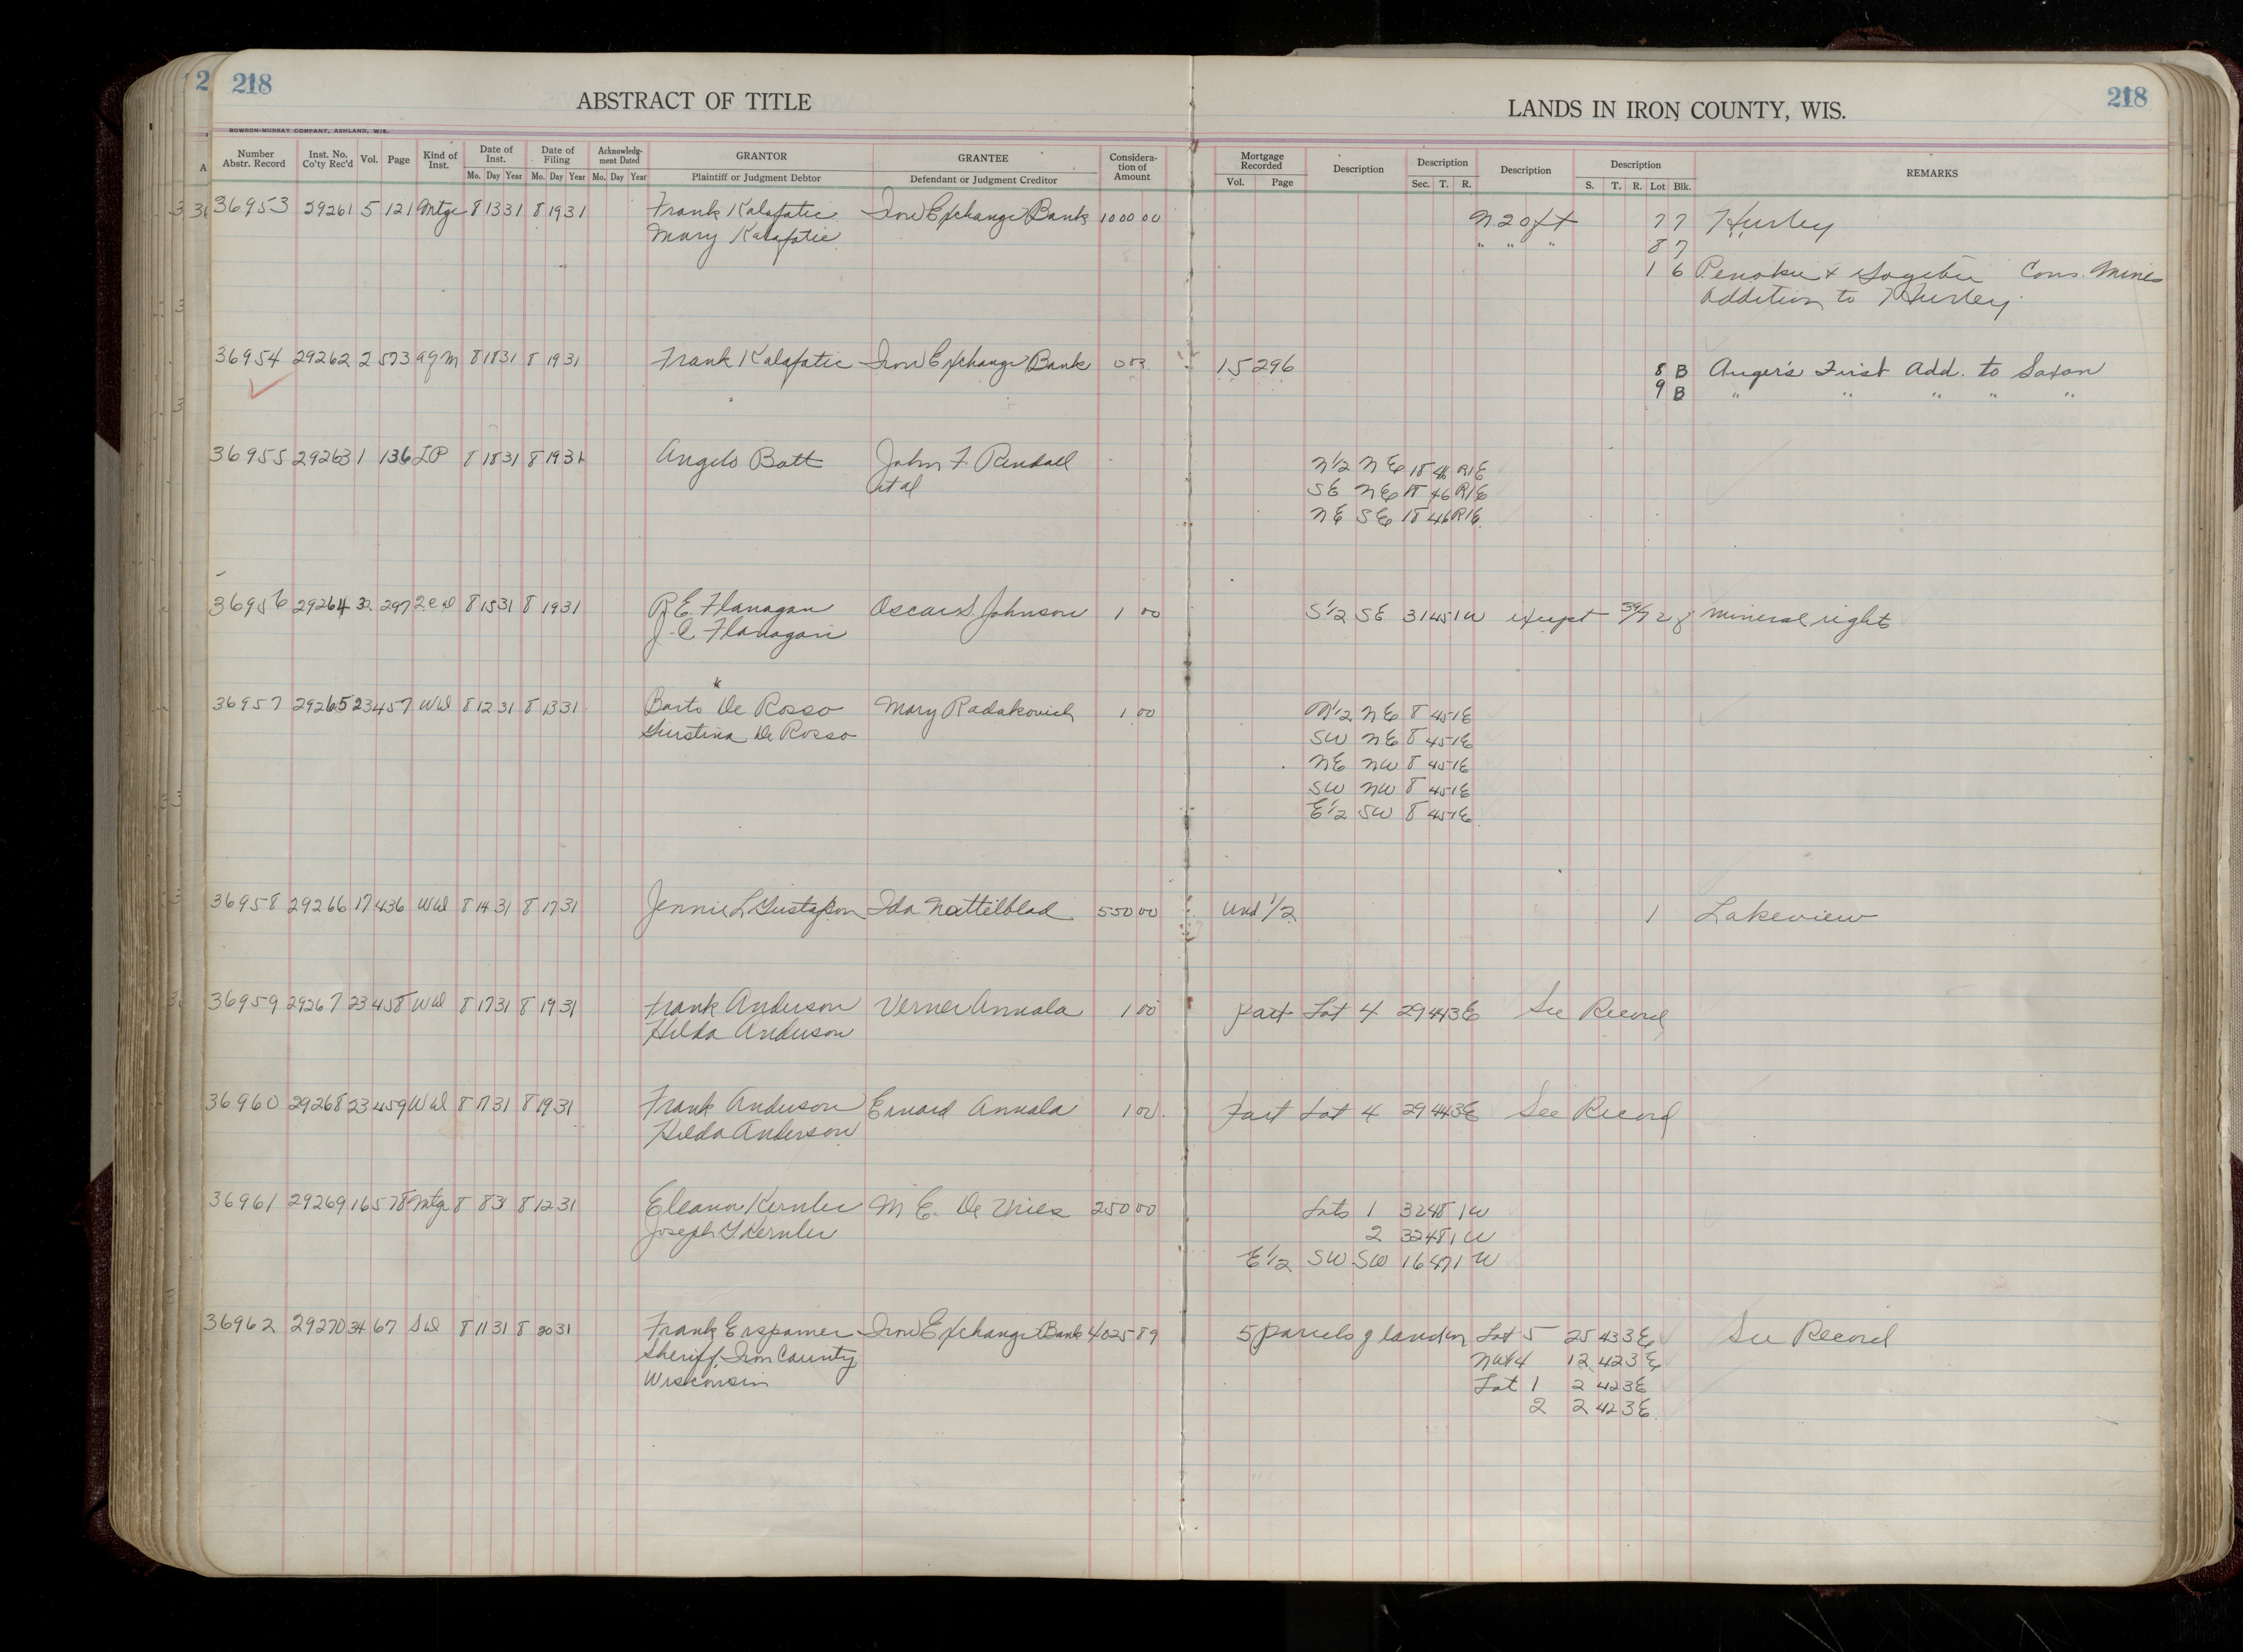 218
ABSTRACT OF TITLE
LANDS IN IRON COUNTY, WIS.
218
BOWRON-MURRAY COMPANY, ASHLAND, WIS.
Number Abstr. Record Inst. No. Co'ty Rec'd Vol. Page Kind of Inst. Date of Inst. Mo. Day Year Date of Filing Mo. Day Year Acknowledgment Dated Mo. Day Year GRANTOR Plaintiff or Judgment Debtor GRANTEE Defendant or Judgment Creditor Consideration of Amount Mortgage Recorded Vol. Page Description Description Sec. T. R. Description Description S. T. R. Lot Blk. REMARKS
36953 29261 5 121 Mtge 8 13 31 8 19 31 Frank Kalafatic Iron Exchange Bank 1000 00 N 20 ft 7 7 Hurley
Mary Kalafatic " " " 8 7 "
1 6 Penokee & Gogebic Cons. Mines
Addition to Hurley
36954 29262 2 573 agm 8 18 31 8 19 31 Frank Kalafatic Iron Exchange Bank 15 296 8 B Auger's First Add. to Saxon
9 B " " " " "
36955 29263 1 136 LP 8 18 31 8 19 31 Angelo Batt John F. Rendall N 1/2 NE 18 46 R1E
et al SE NE 18 46 R1E
NE SE 18 46 R1E
36956 29264 32 297 2cd 8 15 31 8 19 31 R.E. Flanagan Oscar S. Johnson 1 00 S 1/2 SE 31 45 1W except of mineral right
J.C. Flanagan
36957 29265 23 457 Wd 8 12 31 8 13 31 Barto De Rosso Mary Radakovich 1 00 N 1/2 NE 8 45 1E
Giustina De Rosso SW NE 8 45 1E
NE NW 8 45 1E
SW NW 8 45 1E
E 1/2 SW 8 45 1E
36958 29266 17 436 Wd 8 14 31 8 17 31 Jennie L Gustafson Ida Nattelblad 550 00 Und 1/2 1 Lakeview
36959 29267 23 458 Wd 8 17 31 8 19 31 Frank Anderson Verner Annala 1 00 part Lot 4 29 44 3E See Record
Hilda Anderson
36960 29268 23 459 Wd 8 17 31 8 19 31 Frank Anderson Ernard Annala 1 00 Part Lot 4 29 44 3E See Record
Hilda Anderson
36961 29269 16 578 Mtg 8 8 31 8 12 31 Eleanor Kernler M E. De Vries 250 00 Lots 1 32 48 1W
Joseph Kernler 2 32 48 1W
E 1/2 SW SW 16 47 1W
36962 29270 34 67 Sd 8 11 31 8 20 31 Frank Erspamer Iron Exchange Bank 4025 89 5 parcels of land in Lot 5 25 43 3E See Record
Sheriff, Iron County 12 42 3E
Wisconsin Lot 1 2 42 3E
2 2 42 3E